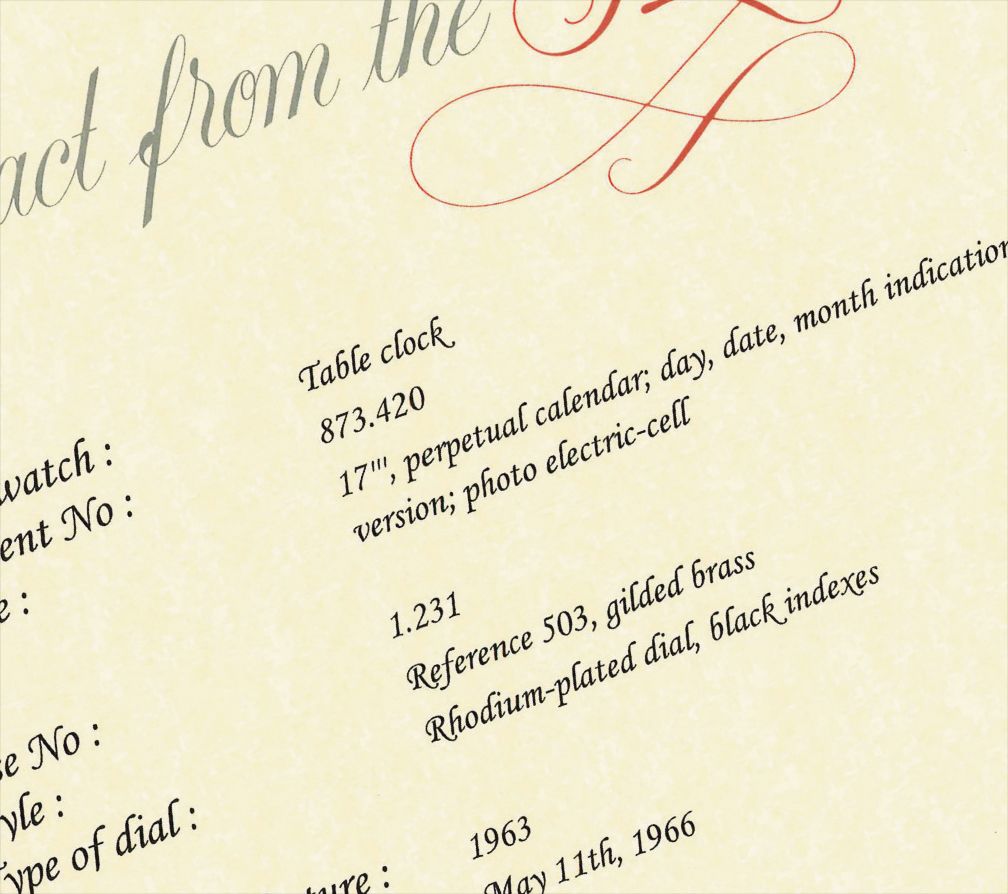 act from the
Table clock
watch : 873.420
ent No : 17''', perpetual calendar; day, date, month indication
e : version; photo electric-cell
1.231
Reference 503, gilded brass
se No : Rhodium-plated dial, black indexes
yle :
Type of dial : 1963
ture : May 11th, 1966